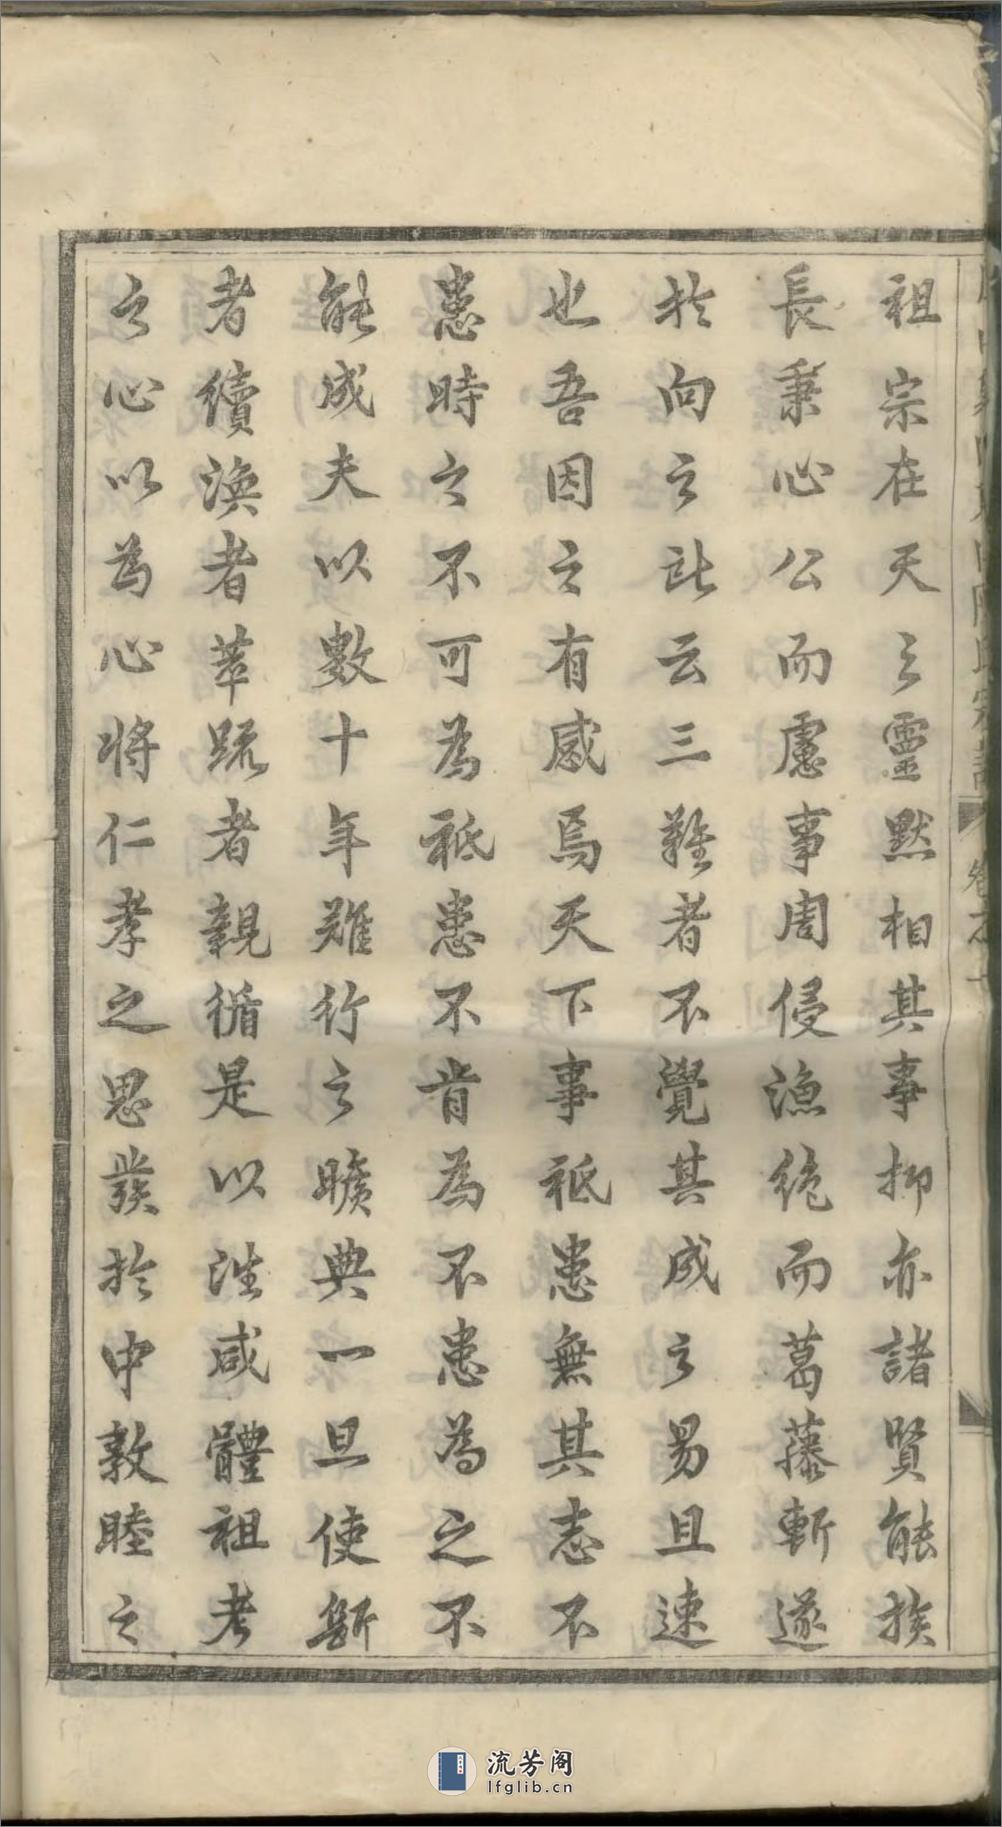 祖宗在天之靈默相其事抑亦諸賢能族
長秉心公而慮事周侵漁絶而葛藤斬遂
於向之所云三難者不覺其成之易且速
也吾因之有感焉天下事祗患無其志不
患時之不可為祗患不肯為不患為之不
能成夫以數十年難行之曠典一旦使斷
者續渙者萃疏者親循是以往咸體祖考
之心以為心將仁孝之思發於中敦睦之
流芳阁
lfglib.cn